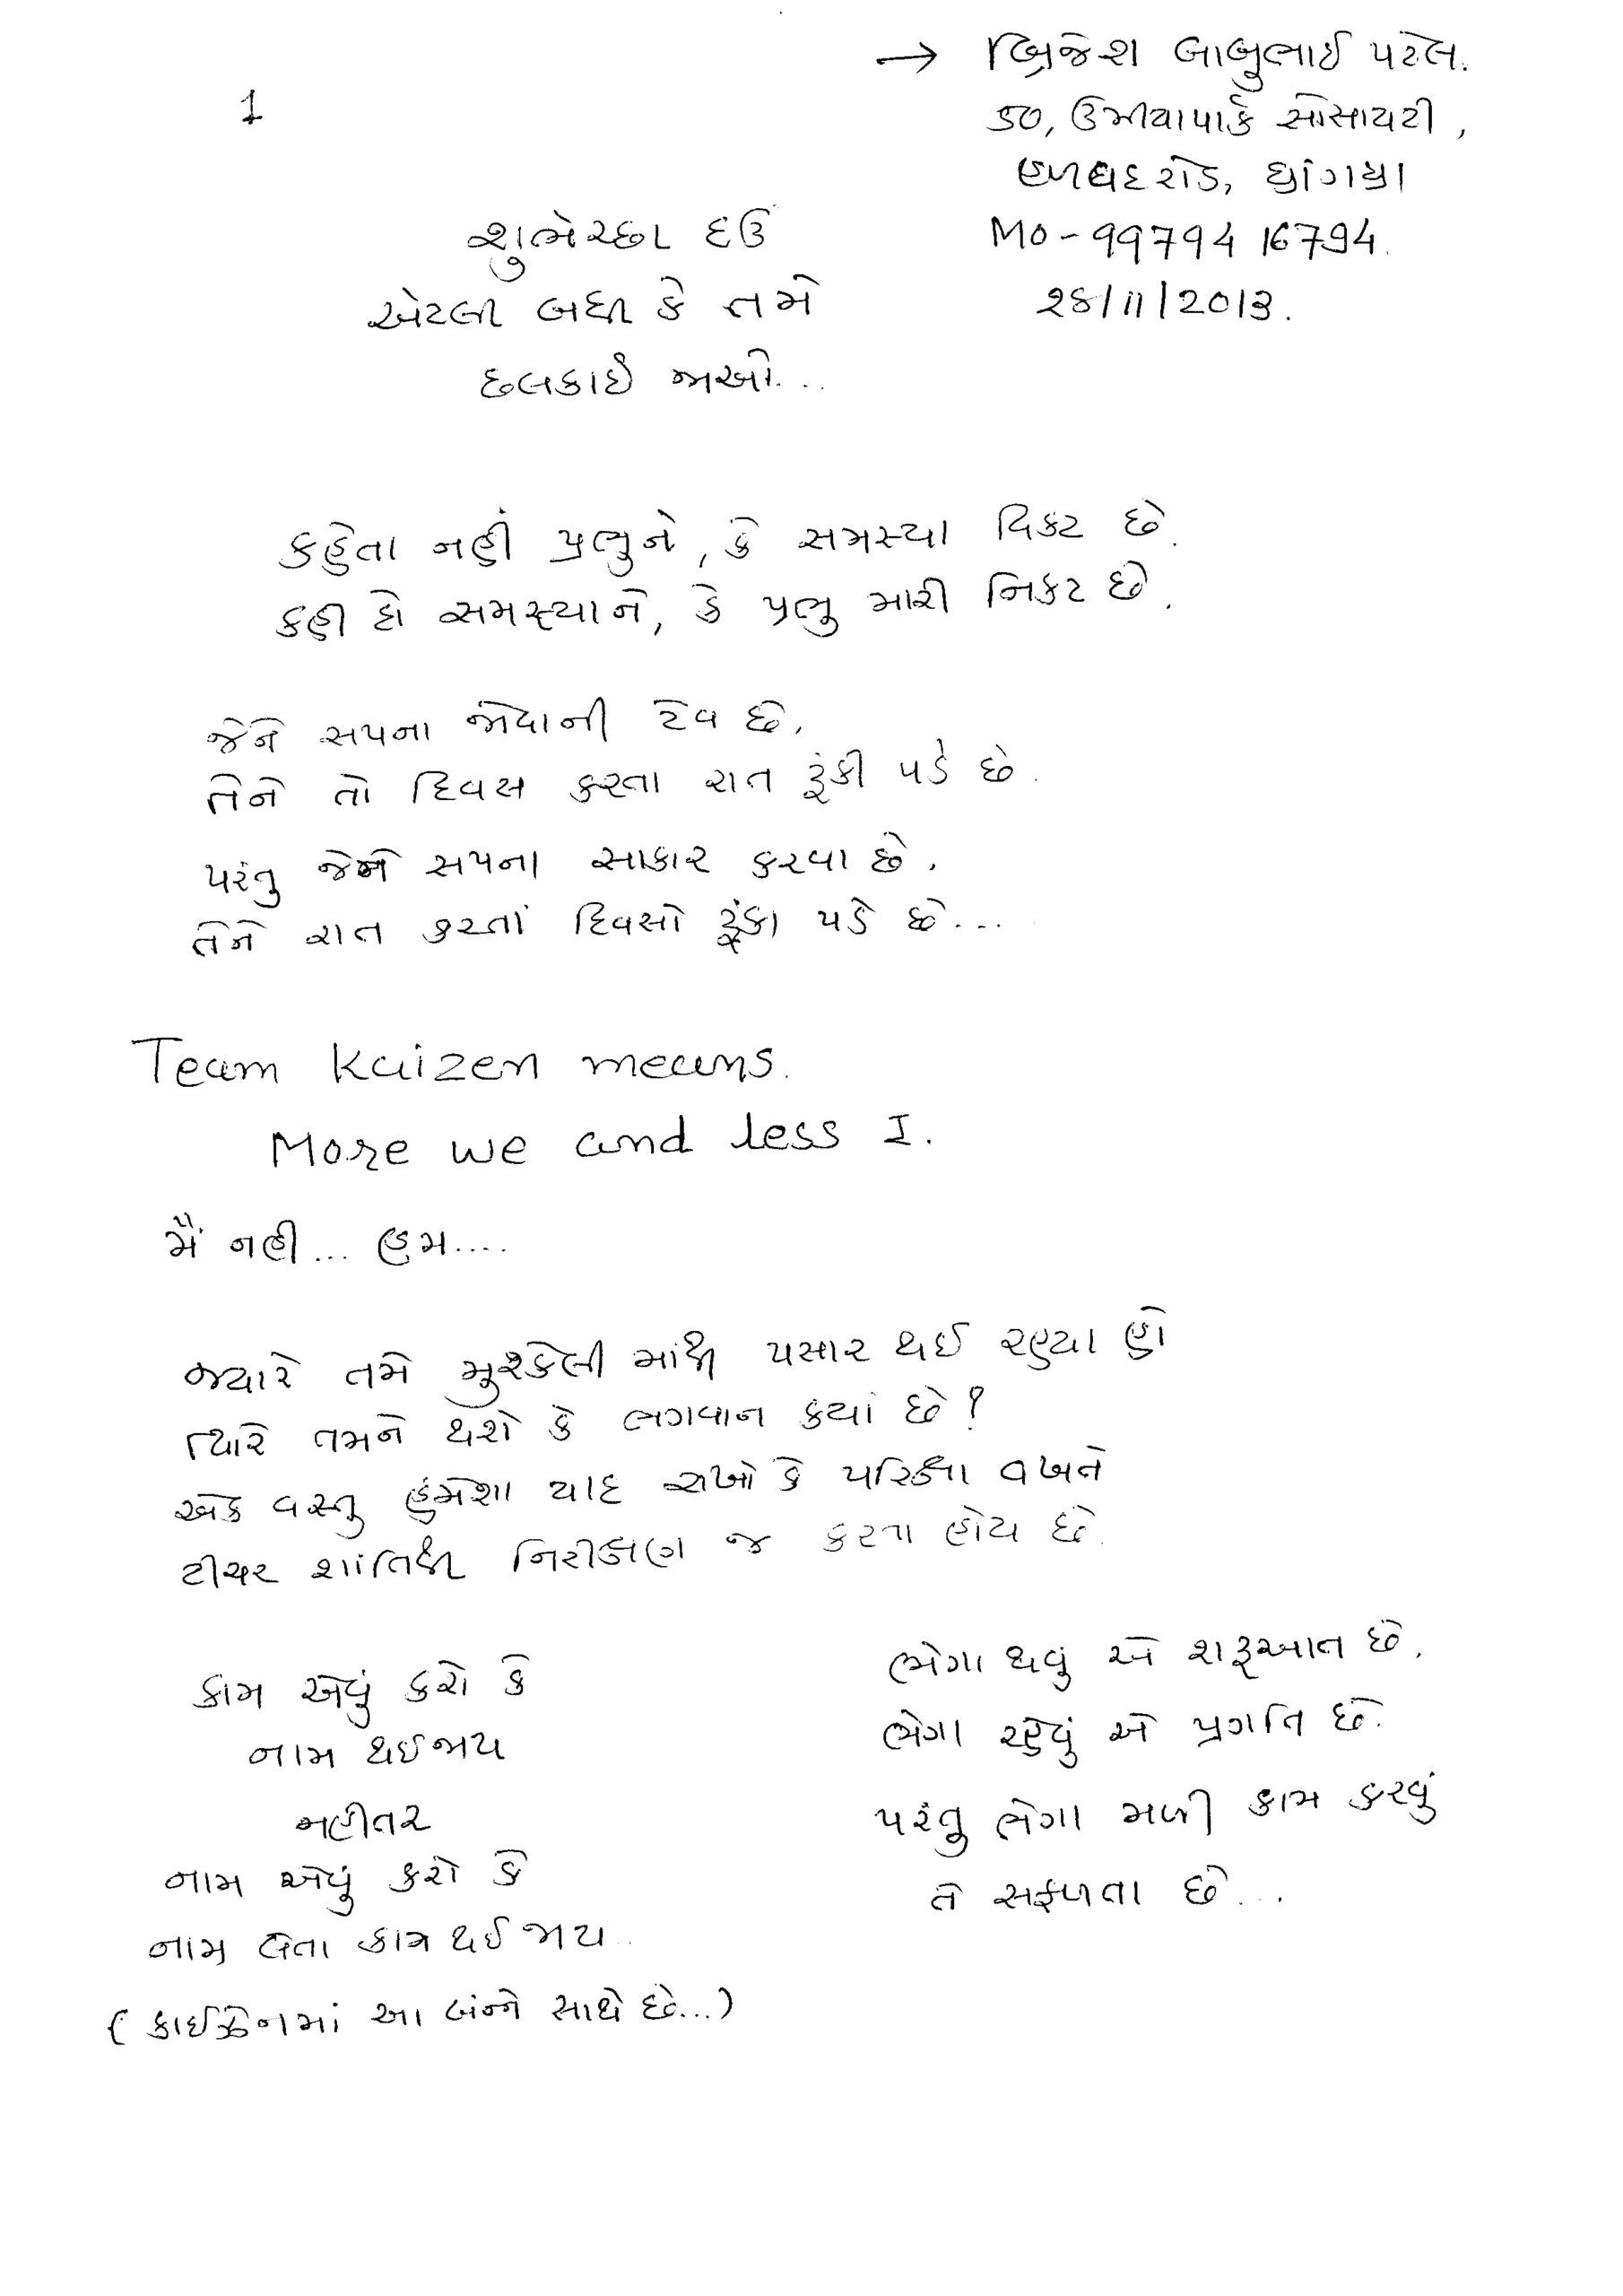 1
→ બ્રિજેશ બાબુભાઈ પટેલ.
50, ઉમીયાપાર્ક સોસાયટી,
હળવદ રોડ, ધ્રાંગધ્રા
Mo - 99794 16794.
28/11/2013.
શુભેચ્છા દઉં
એટલી બધી કે તમે
છલકાઈ જાઓ...
કહેતા નહીં પ્રભુને, કે સમસ્યા વિકટ છે.
કહી દો સમસ્યાને, કે પ્રભુ મારી નિકટ છે.
જેને સપના જોવાની ટેવ છે,
તેને તો દિવસ કરતા રાત ટૂંકી પડે છે.
પરંતુ જેને સપના સાકાર કરવા છે,
તેને રાત કરતાં દિવસો ટૂંકા પડે છે...
Team Kaizen means.
More we and less I.
મૈં નહી... હમ....
જ્યારે તમે મુશ્કેલી માંથી પસાર થઈ રહ્યા હો
ત્યારે તમને થશે કે ભગવાન કયાં છે?
એક વસ્તુ હંમેશા યાદ રાખો કે પરિક્ષા વખતે
ટીચર શાંતિથી નિરીક્ષણ જ કરતા હોય છે.
કામ એવું કરો કે
નામ થઈ જાય
નહીતર
નામ એવું કરો કે
નામ લેતા કામ થઈ જાય..
(કાઈઝેનમાં આ બંન્ને સાથે છે...)
ભેગા થવું એ શરૂઆત છે.
ભેગા રહેવું એ પ્રગતિ છે.
પરંતુ ભેગા મળી કામ કરવું
તે સફળતા છે...